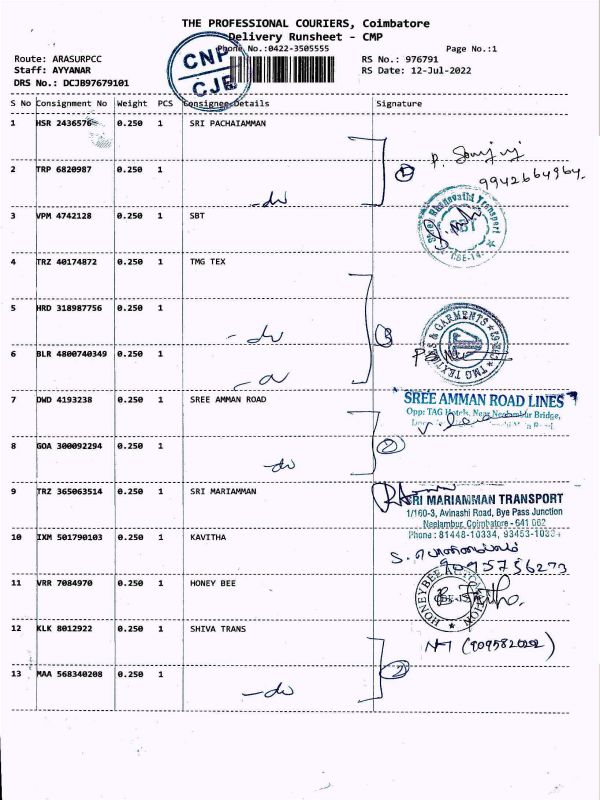 THE PROFESSIONAL COURIERS, Coimbatore
Delivery Runsheet - CMP
Phone No.:0422-3505555
Page No.:1
Route: ARASURPCC
RS No.: 976791
Staff: AYYANAR
RS Date: 12-Jul-2022
DRS No.: DCJB97679101
CNP
CJB
S No Consignment No Weight PCS Consignee Details Signature
1 HSR 2436576 0.250 1 SRI PACHAIAMMAN
2 TRP 6820987 0.250 1
- do
9942664964
3 VPM 4742128 0.250 1 SBT
Sree Bhagavathi Transport
SBT
CBE-14
4 TRZ 40174872 0.250 1 TMG TEX
5 HRD 318987756 0.250 1
- do
3
TMG TEXTILES & GARMENTS
6 BLR 4800740349 0.250 1
7 DWD 4193238 0.250 1 SREE AMMAN ROAD
SREE AMMAN ROAD LINES
Opp: TAG Hotels, Near Neelambur Bridge,
8 GOA 300092294 0.250 1
- do
2
9 TRZ 365063514 0.250 1 SRI MARIAMMAN
SRI MARIAMMAN TRANSPORT
1/160-3, Avinashi Road, Bye Pass Junction
Neelambur, Coimbatore - 641 062
Phone : 81448-10334, 93453-10334
10 IXM 501790103 0.250 1 KAVITHA
9095756273
11 VRR 7084970 0.250 1 HONEY BEE
HONEYBEE AUTOMATION
12 KLK 8012922 0.250 1 SHIVA TRANS
13 MAA 568340208 0.250 1
- do
2